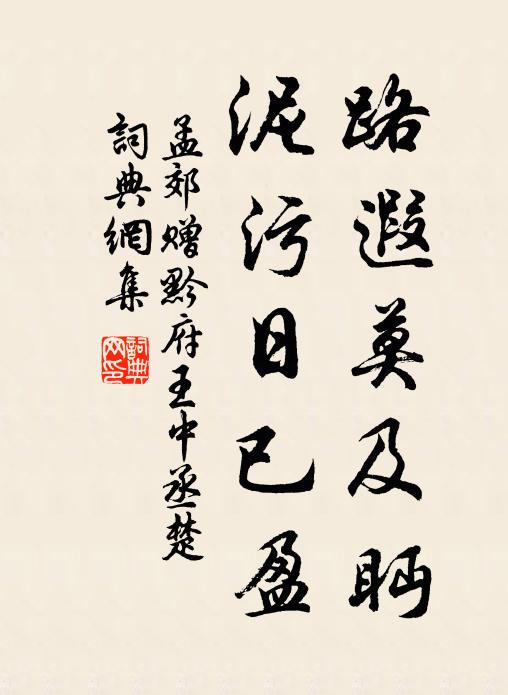 路遐莫及眄
泥污日已盈
孟郊赠黔府王中丞楚
詞典網集
詞典網印